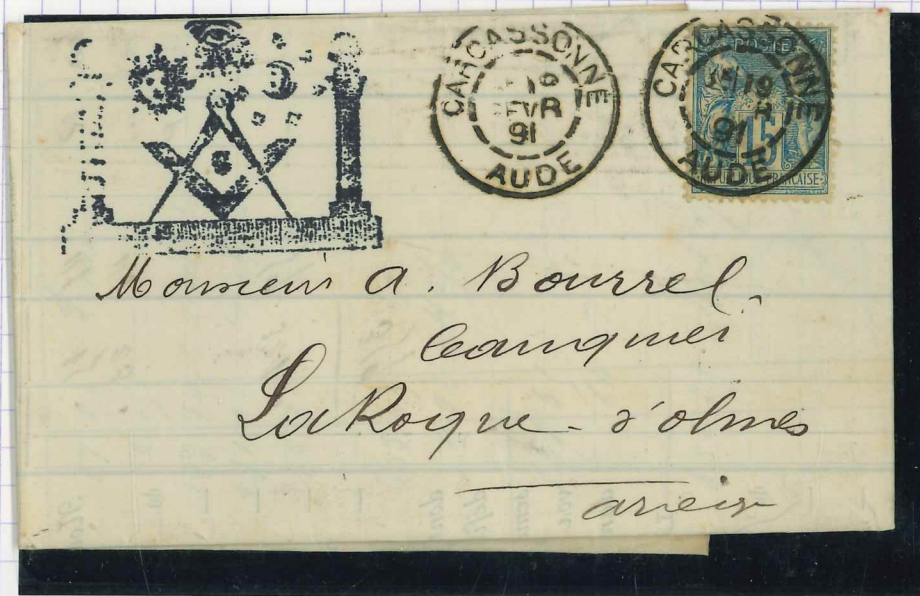 CARCASSONNE
19
FEVR
91
AUDE
CARCASSONNE
19
R
91
AUDE
POSTE
15
FRANÇAISE
G
Monsieur A. Bourrel
banquier
LaRoque-d'olmes
ariège